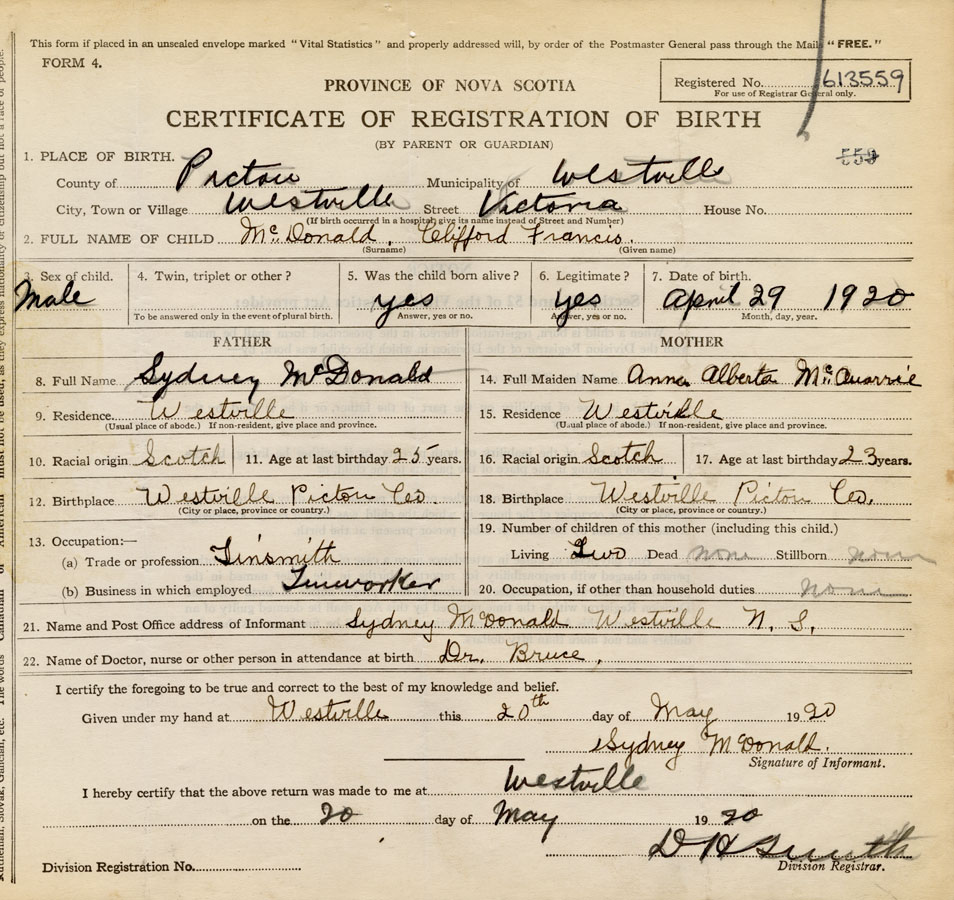 This form if placed in an unsealed envelope marked "Vital Statistics" and properly addressed will, by order of the Postmaster General pass through the Mails "FREE."
FORM 4.
Registered No. 613559
For use of Registrar General only.
PROVINCE OF NOVA SCOTIA
CERTIFICATE OF REGISTRATION OF BIRTH
(BY PARENT OR GUARDIAN)
559
1. PLACE OF BIRTH.
County of Pictou Municipality of Westville
City, Town or Village Westville Street Victoria House No.
(If birth occurred in a hospital give its name instead of Street and Number)
2. FULL NAME OF CHILD McDonald, Clifford Francis.
(Surname) (Given name)
3. Sex of child. 4. Twin, triplet or other? 5. Was the child born alive? 6. Legitimate? 7. Date of birth.
Male yes yes April 29 1920
To be answered only in the event of plural birth. Answer, yes or no. Answer, yes or no. Month, day, year.
FATHER MOTHER
8. Full Name Sydney McDonald 14. Full Maiden Name Anna Alberta McQuarrie
9. Residence. Westville 15. Residence Westville
(Usual place of abode.) If non-resident, give place and province. (Usual place of abode.) If non-resident, give place and province.
10. Racial origin Scotch 11. Age at last birthday 25 years. 16. Racial origin Scotch 17. Age at last birthday 23 years.
12. Birthplace Westville Pictou Co. 18. Birthplace Westville Pictou Co.
(City or place, province or country.) (City or place, province or country.)
19. Number of children of this mother (including this child.)
13. Occupation:—
(a) Trade or profession Tinsmith Living Two Dead none Stillborn none
(b) Business in which employed Tinworker 20. Occupation, if other than household duties none
21. Name and Post Office address of Informant Sydney McDonald Westville N. S.
22. Name of Doctor, nurse or other person in attendance at birth Dr. Bruce.
I certify the foregoing to be true and correct to the best of my knowledge and belief.
Given under my hand at Westville this 20th day of May 1920
Sydney McDonald.
Signature of Informant.
I hereby certify that the above return was made to me at Westville
on the 20 day of May 19 20
D H Smith
Division Registrar.
Division Registration No.